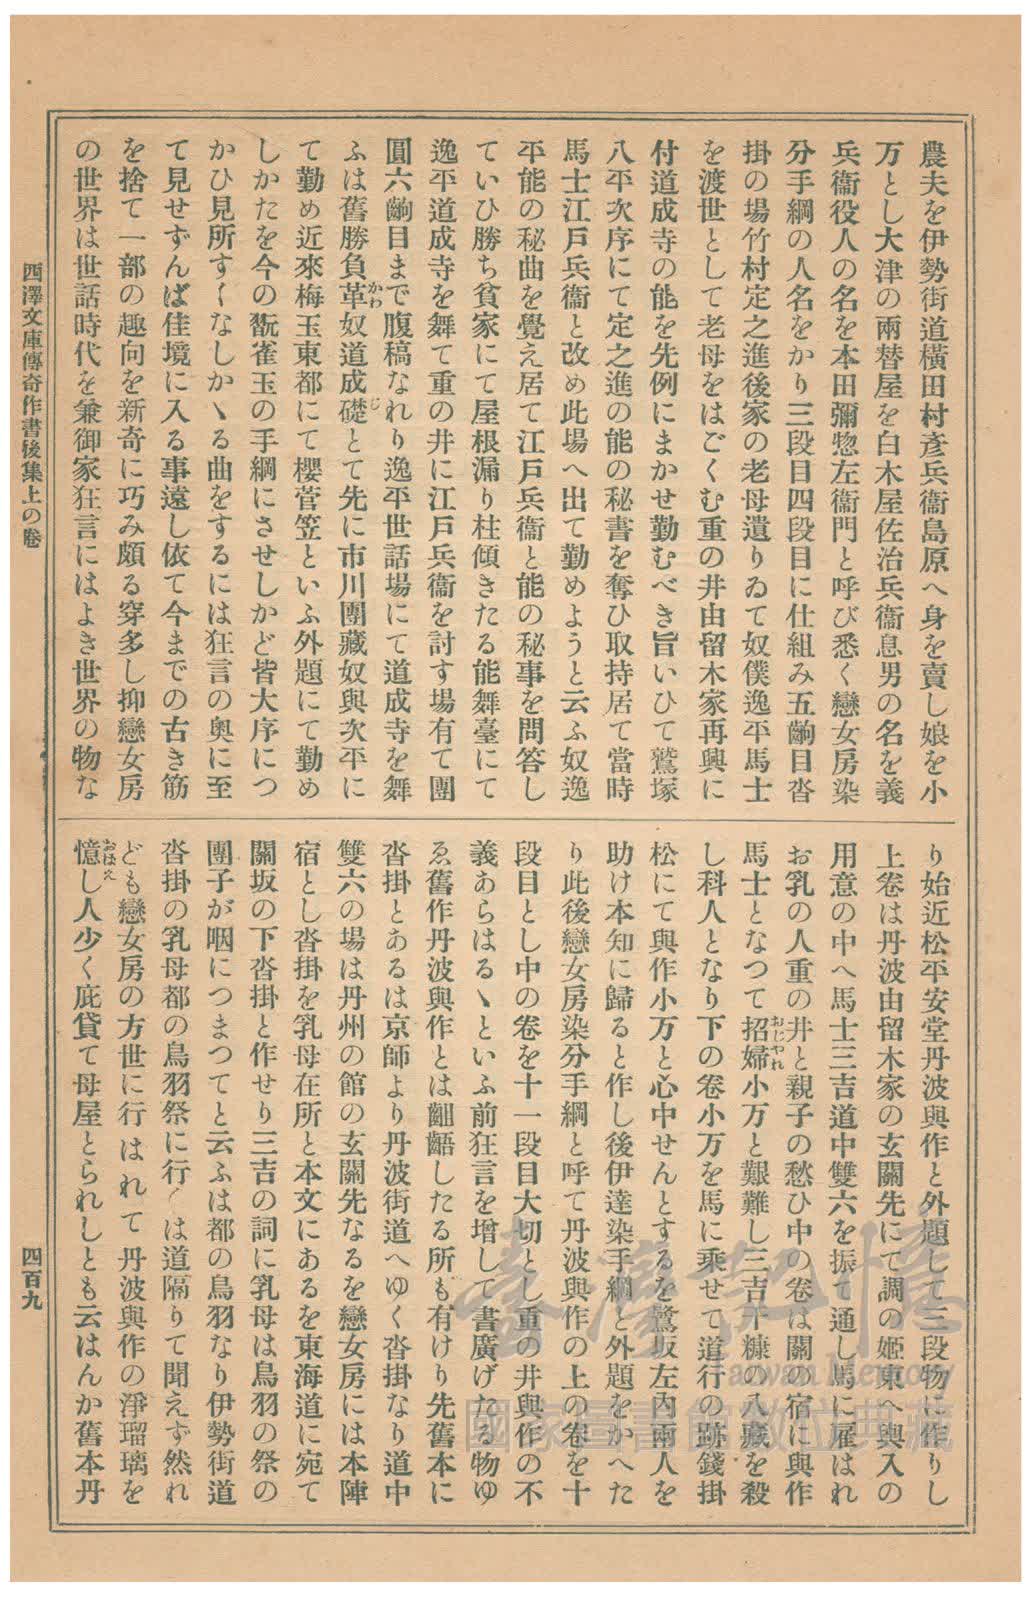 農夫を伊勢街道橫田村彥兵衞島原へ身を賣し娘を小
万とし大津の兩替屋を白木屋佐治兵衞息男の名を義
兵衞役人の名を本田彌惣左衞門と呼び悉く戀女房染
分手綱の人名をかり三段目四段目に仕組み五齣目沓
掛の場竹村定之進後家の老母遣りゐて奴僕逸平馬士
を渡世として老母をはごくむ重の井由留木家再興に
付道成寺の能を先例にまかせ勤むべき旨いひて鷲塚
八平次序にて定之進の能の秘書を奪ひ取持居て當時
馬士江戸兵衞と改め此場へ出て勤めようと云ふ奴逸
平能の秘曲を覺え居て江戸兵衞と能の秘事を問答し
ていひ勝ち貧家にて屋根漏り柱傾きたる能舞臺にて
逸平道成寺を舞て重の井に江戸兵衞を討す場有て團
圓六齣目まで腹稿なれり逸平世話場にて道成寺を舞
ふは舊勝負革奴道成礎とて先に市川團藏奴與次平に
て勤め近來梅玉東都にて櫻菅笠といふ外題にて勤め
しかたを今の翫雀玉の手綱にさせしかど皆大序につ
かひ見所すくなしかゝる曲をするには狂言の奧に至
て見せずんば佳境に入る事遠し依て今までの古き筋
を捨て一部の趣向を新奇に巧み頗る穿多し抑戀女房
の世界は世話時代を兼御家狂言にはよき世界の物な
り始近松平安堂丹波與作と外題して三段物に作りし
上卷は丹波由留木家の玄關先にて調の姬東へ與入の
用意の中へ馬士三吉道中雙六を振て通し馬に雇はれ
お乳の人重の井と親子の愁ひ中の卷は關の宿に與作
馬士となつて招婦小万と艱難し三吉干糠の八藏を殺
し科人となり下の卷小万を馬に乘せて道行の跡錢掛
松にて與作小万と心中せんとするを鷺坂左內兩人を
助け本知に歸ると作し後伊達染手綱と外題をかへた
り此後戀女房染分手綱と呼て丹波與作の上の卷を十
段目とし中の卷を十一段目大切とし重の井與作の不
義あらはるゝといふ前狂言を增して書廣げたる物ゆ
ゑ舊作丹波與作とは齟齬したる所も有けり先舊本に
沓掛とあるは京師より丹波街道へゆく沓掛なり道中
雙六の場は丹州の館の玄關先なるを戀女房には本陣
宿とし沓掛を乳母在所と本文にあるを東海道に宛て
關坂の下沓掛と作せり三吉の詞に乳母は鳥羽の祭の
團子が咽につまつてと云ふは都の鳥羽なり伊勢街道
沓掛の乳母都の鳥羽祭に行くは道隔りて聞えず然れ
ども戀女房の方世に行はれて丹波與作の淨瑠璃を
憶し人少く庇貸て母屋とられしとも云はんか舊本丹
かわ
じ
おじやれ
おぼえ
西澤文庫傳奇作書後集上の卷
四百九
臺灣記憶
Taiwan Memory
國家圖書館數位典藏